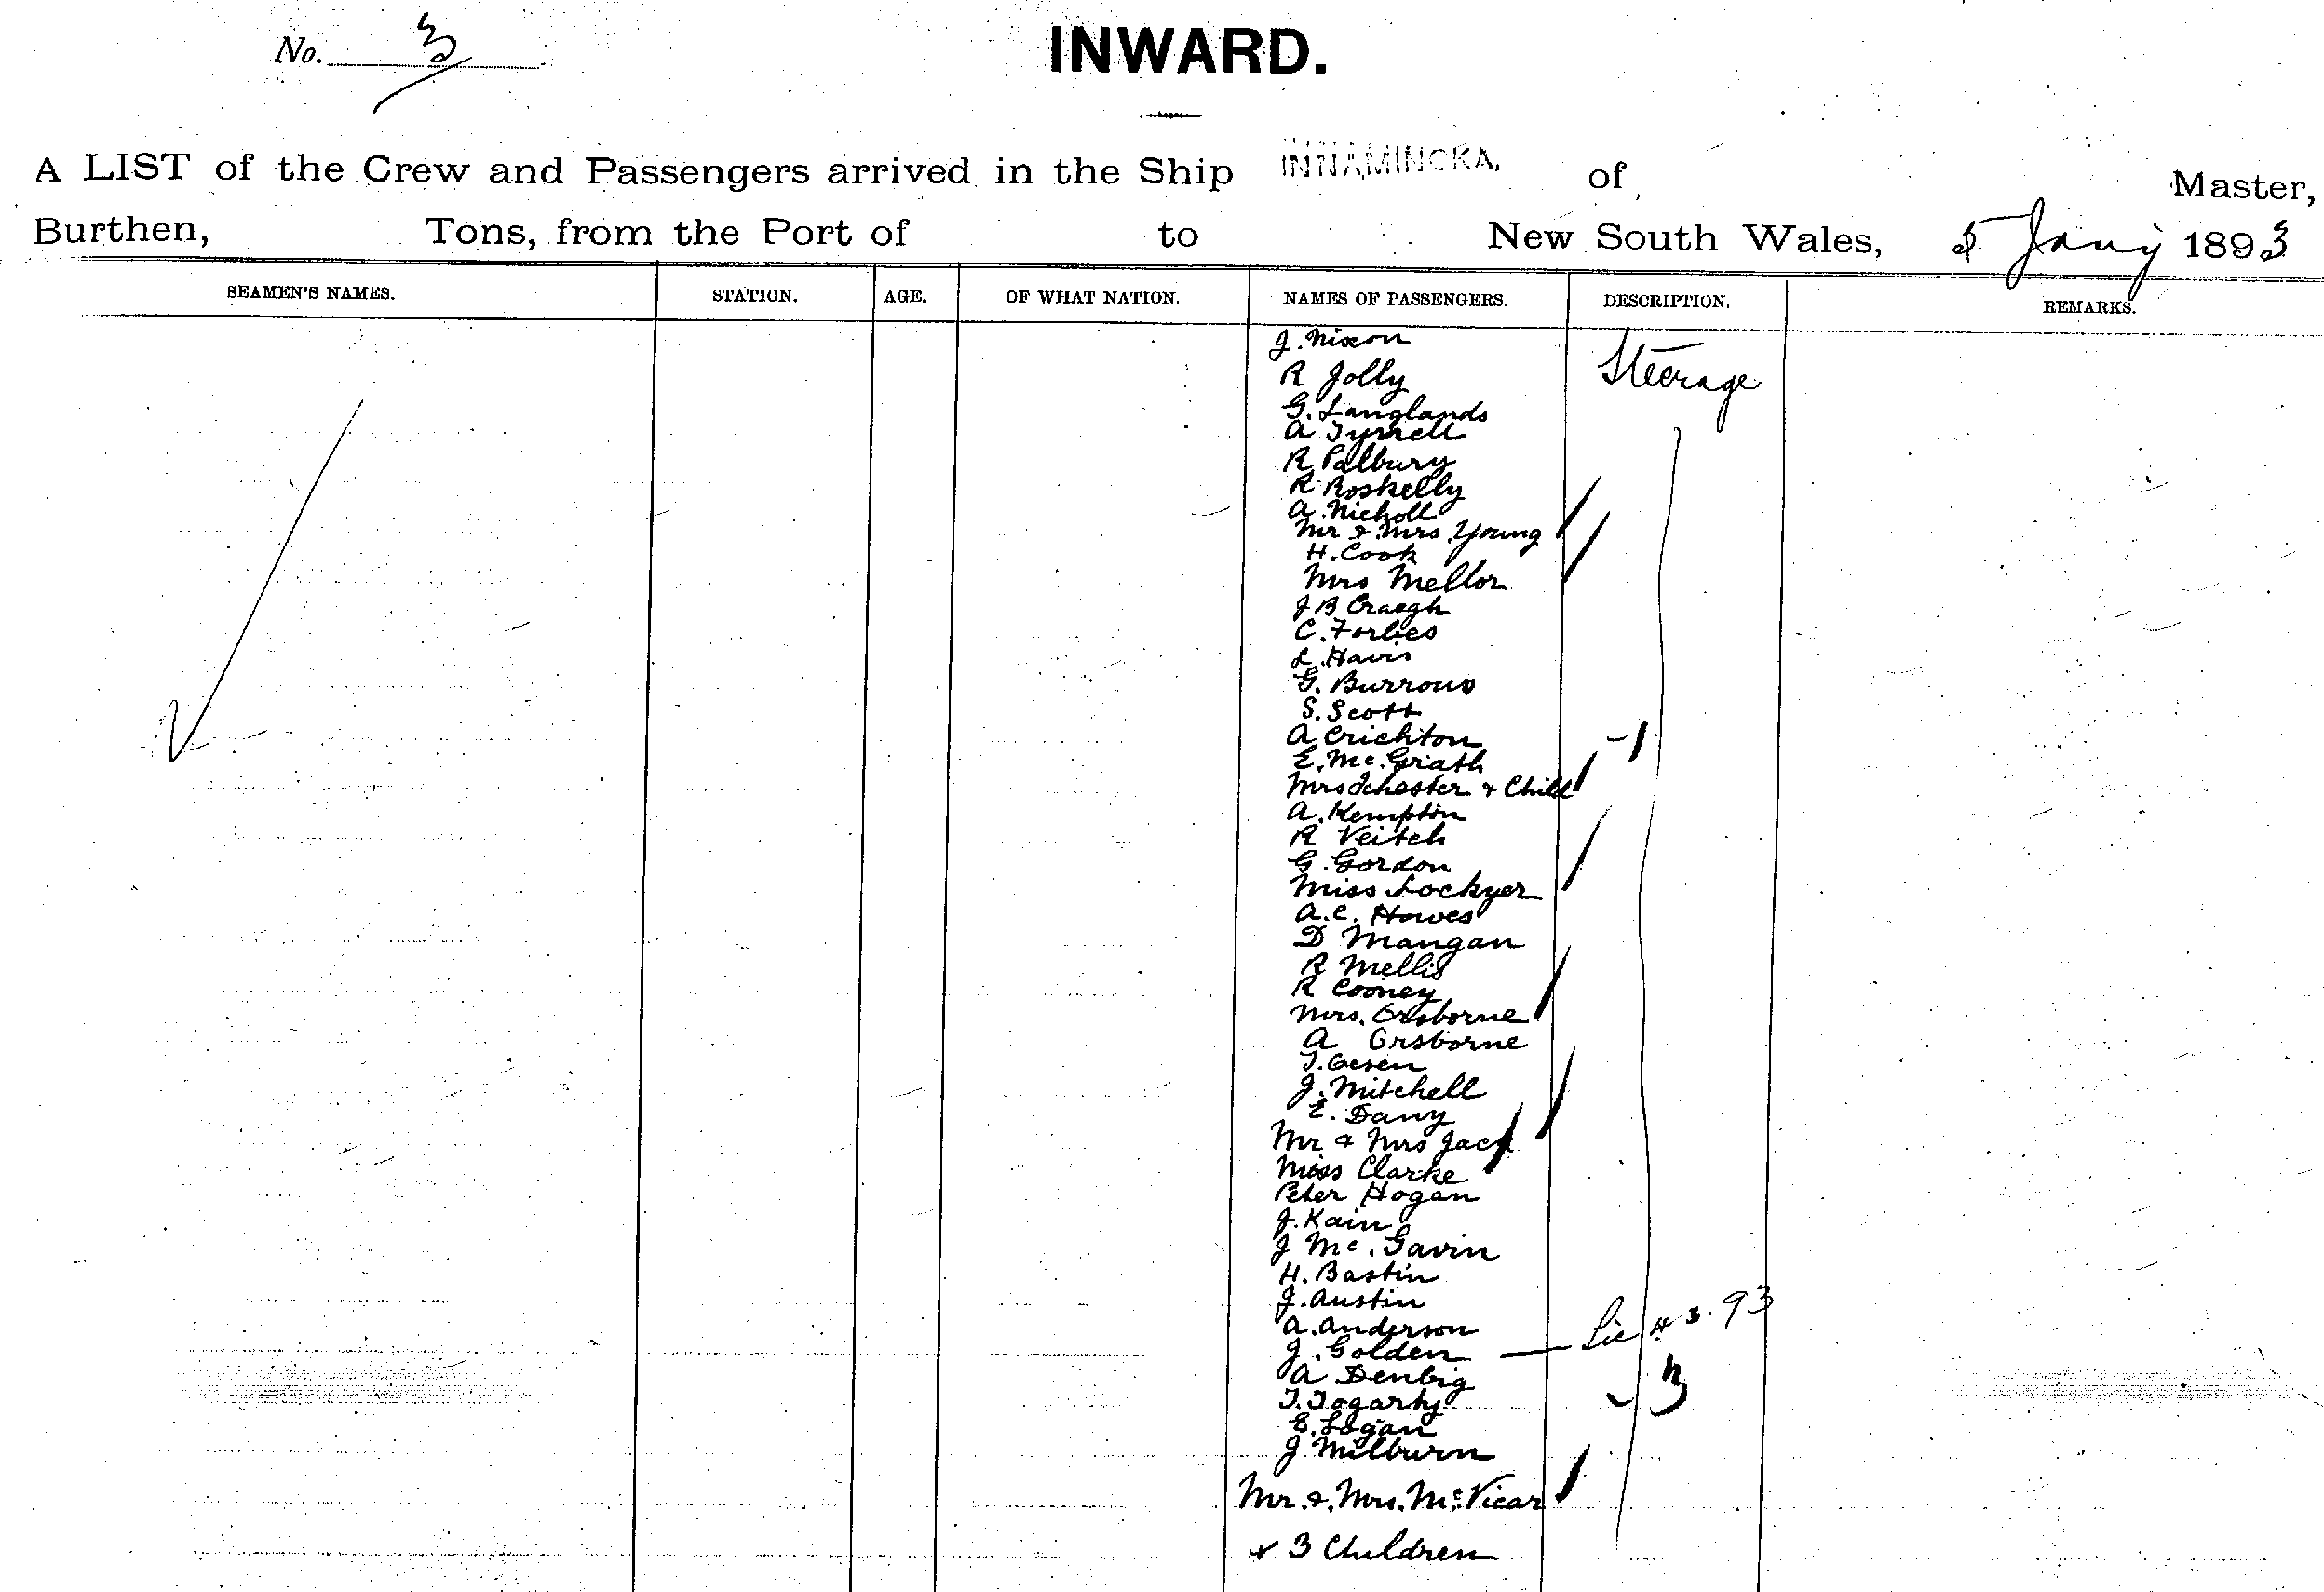 No. 3
INWARD.
A LIST of the Crew and Passengers arrived in the Ship INNAMINCKA, of Master,
Burthen, Tons, from the Port of to New South Wales, 5 Jany 1893
SEAMEN'S NAMES. STATION. AGE. OF WHAT NATION. NAMES OF PASSENGERS. DESCRIPTION. REMARKS.
J. Nixon
R Jolly Steerage
G. Langlands
A Tyrrell
R Palbury
R Roskelly
A. Nicholl
Mr & Mrs Young
H. Cook
Mrs Mellor
J B Craegh
C. Forbes
L. Havis
G. Burrows
S. Scott
A Crichton - 1
E. Mc. Grath
Mrs Ichester & Child
A. Kempton
R Veitch
G. Gordon
Miss Lockyer
A. C. Howes
D Mangan
R Mellis
R Cooney
Mrs. Orsborne
A Orsborne
J. Mitchell
E. Dawy
Mr & Mrs Jack
Miss Clarke
Peter Hogan
J. Kain
J Mc. Gavin
H. Bastin
J. Austin
A. Anderson
J. Golden — 93
A Denbig
T. Fogarty - 3
E. Logan
J Milburn
Mr. & Mrs. McVicar
& 3 Children